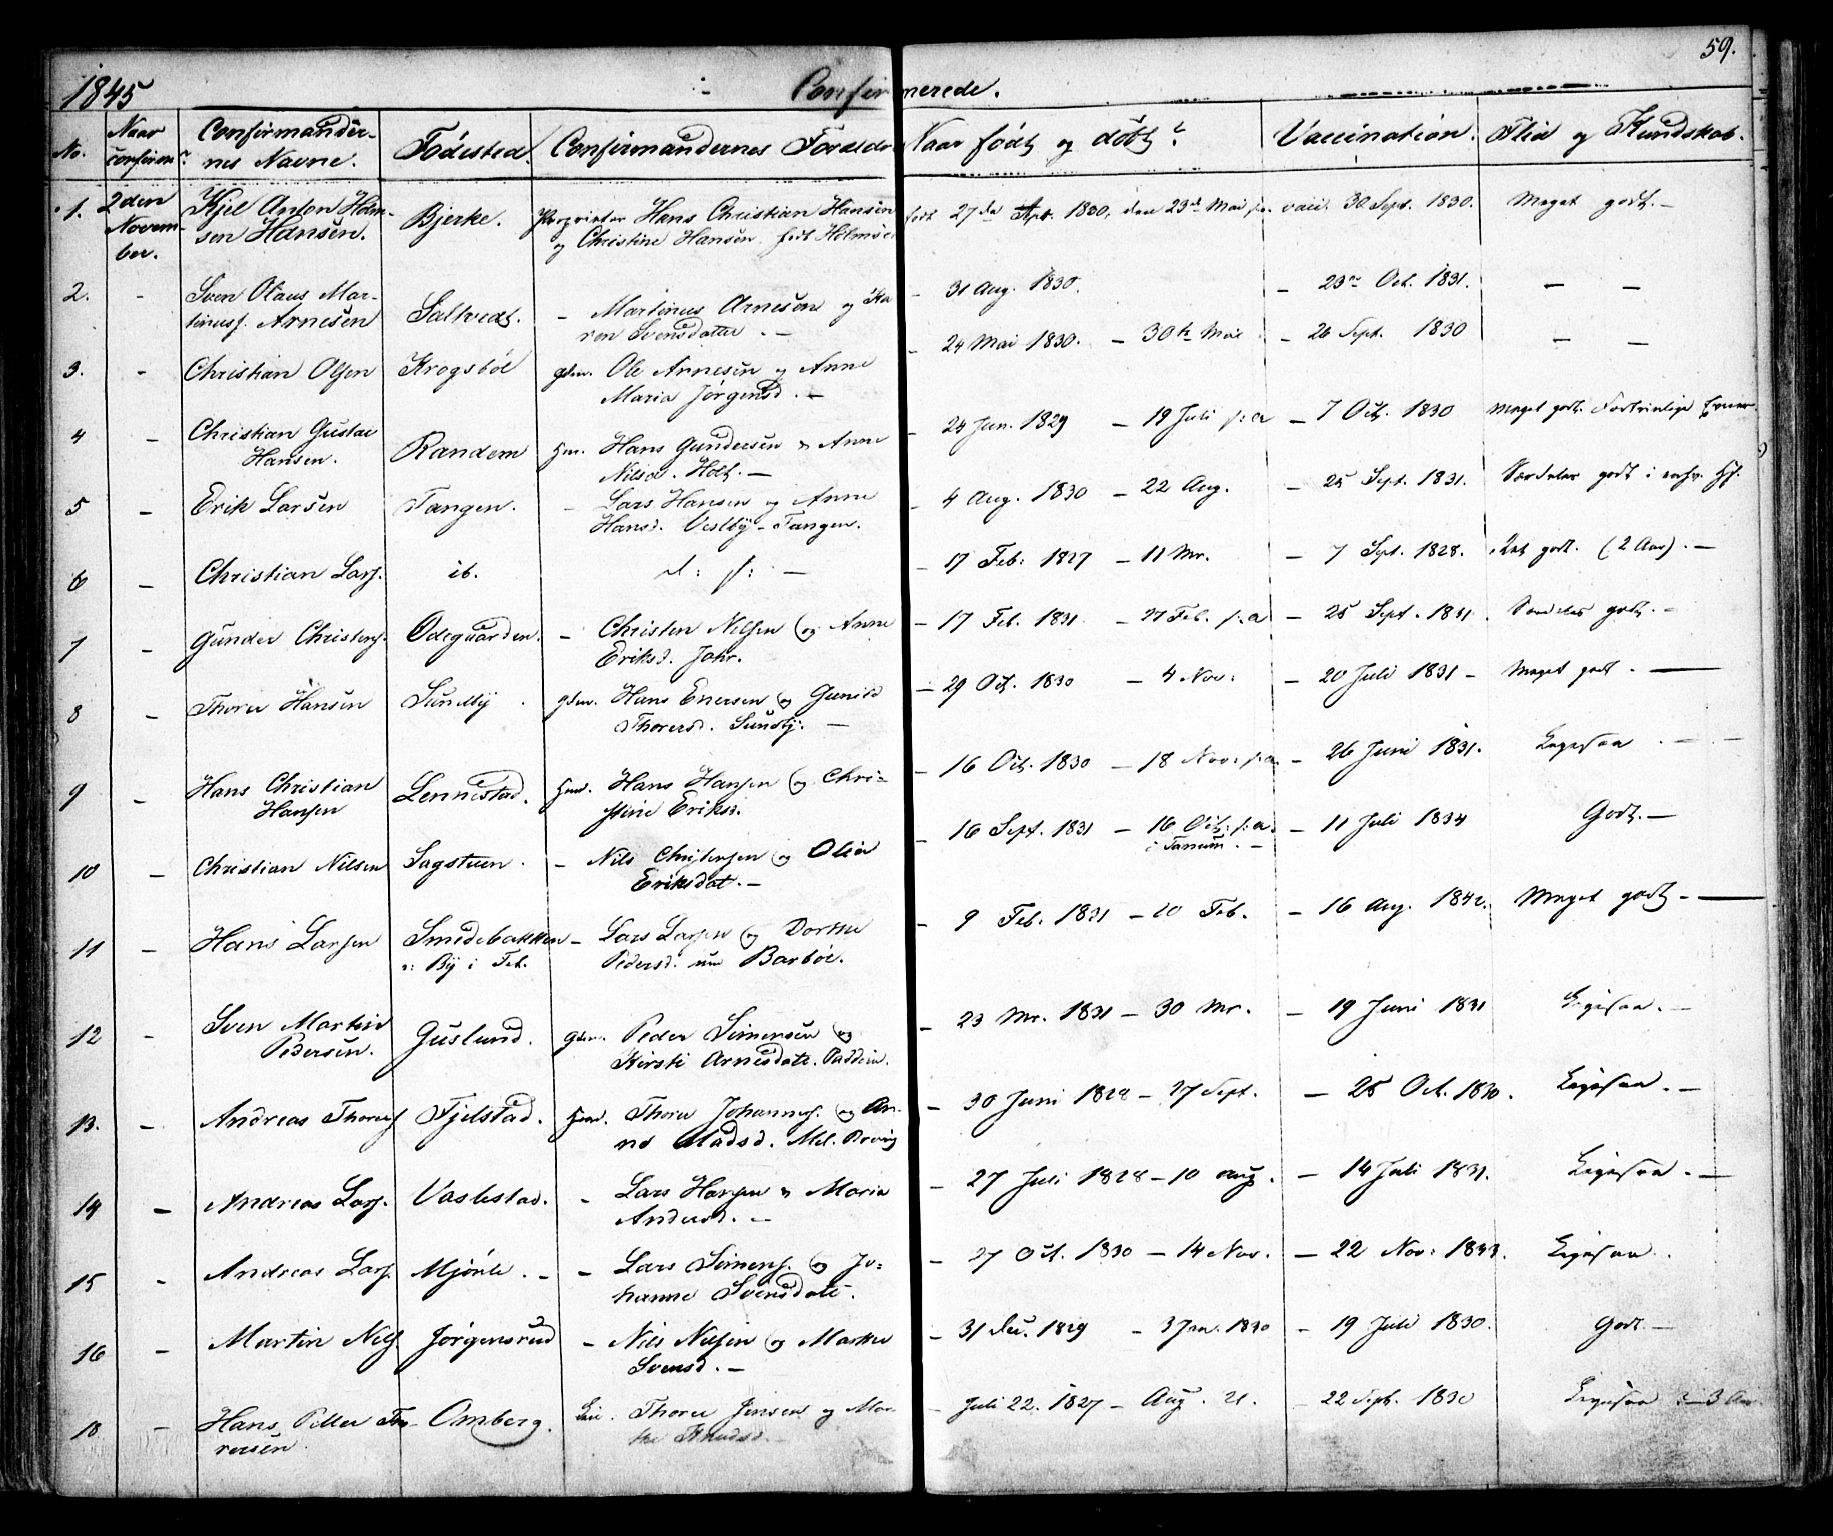 59.
1845 Confirmerede.
No. Naar confirm. Confirmandernes Navne. Födested. Confirmandernes Forældre Naar födt og döbt? Vaccination. Flid og Kundskab.
1. 2den November. Kjel Anton Holmsen Hansen. Bjerke. Proprietær Hans Christian Hansen og Christine Hansen født Holmsen født 27de Sept. 1830, den 23de Mai vacc. 30 Sept. 1830. Meget godt. —
2. - Sven Olaus Martinuss. Arnesen Saltvedt. - Martinus Arnesen og Karen Svensdatter. - - 31 Aug. 1830. - 23de Oct. 1831. — —
3. - Christian Olsen Krogsböl gdm. Ole Arnesen og Anne Maria Jørgensd. - - 24 Mai 1830. - 30te Mai - 26 Sept. 1830 — —
4 - Christian Gustav Hansen. Randem Hans Gundersen & Anne Nilsd. Holt. — - 24 Jun. 1829 - 19 Juli p:a - 7 Oct. 1830 Meget godt. Fortrinlige Evner.
5 - Erik Larsen Tangen. - Lars Hansen og Anne Hansd. Vestby-Tangen. - 4 Aug. 1830 - 22 Aug. - 25 Sept. 1831. Særdeles godt i
6 - Christian Lars. ib. d: s: — - 17 Feb: 1827 - 11 Mr. - 7 Sept. 1828. godt. (2 Aar). —
7 - Gunder Christens. Ödeguarden. - Christen Nilsen og Anne Eriksd. Johr. - 17 Feb. 1831. - 27 Feb. p:a - 25 Sept. 1831. Særdeles godt. -
8 - Thorer Hansen Sundby. gdm. Hans Enersen og Gunild Thorersd. Sundby. — - 29 Oct. 1830 - 4 Nov: - 20 Juli 1831 - Meget godt. —
9 - Hans Christian Hansen Lennestad. Hans Hansen og Christine Eriksd. - 16 Oct. 1830 - 18 Nov: p:a - 26 Juni 1831. Ligesaa. - -
10 - Christian Nilsen Sagstuen. - Nils Christensen og Olia Eriksdat. - - 16 Sept. 1831 - 16 Oct: p:a. i Tanum. - - 11 Juli 1834 Godt. —
11 - Hans Larsen Smedebakken ɔ: By i Fet. - Lars Larsen og Dorthe Pedersd. Barböl. - 9 Feb. 1831 - 20 Feb. - 16 Aug. 1842. Meget godt. —
12 - Sven Martin Pedersen. Guslund. gdm. Peder Simensen og Kirsti Arnesdatt. - 23 Mr. 1831 - 30 Mr. - 19 Juni 1831 Ligesaa. —
13. - Andreas Thorers. Fjelstad. Thorer Johanness. og Anne Madsd. - 30 Juni 1828 - 27 Sept. - 25 Oct. 1830. Ligesaa. —
14 - Andreas Lars. Vaslestad. - Lars Hansen & Maria Andersd. - - 27 Juli 1828 - 10 Aug. - 14 Juli 1831. Ligesaa. —
15 - Andreas Lars. Mjönle. - - Lars Simens. og Johanne Svensdatt. - 27 Oct. 1830 - 14 Nov. - 22 Nov: 1833. Ligesaa.
16 - Martin Nils. Jørgensrud - Nils Nilsen og Marthe Svensd. — - 31 Dec. 1829 - 3 Jan. 1830 - 19 Juli 1830. Godt. —
18 - Hans Peter Thorersen Omberg. Thorer Jensen og Marthe Knudsd. - - Juli 22. 1827 - Aug. 21. - 22 Sept. 1830 Ligesaa 3 Aar.